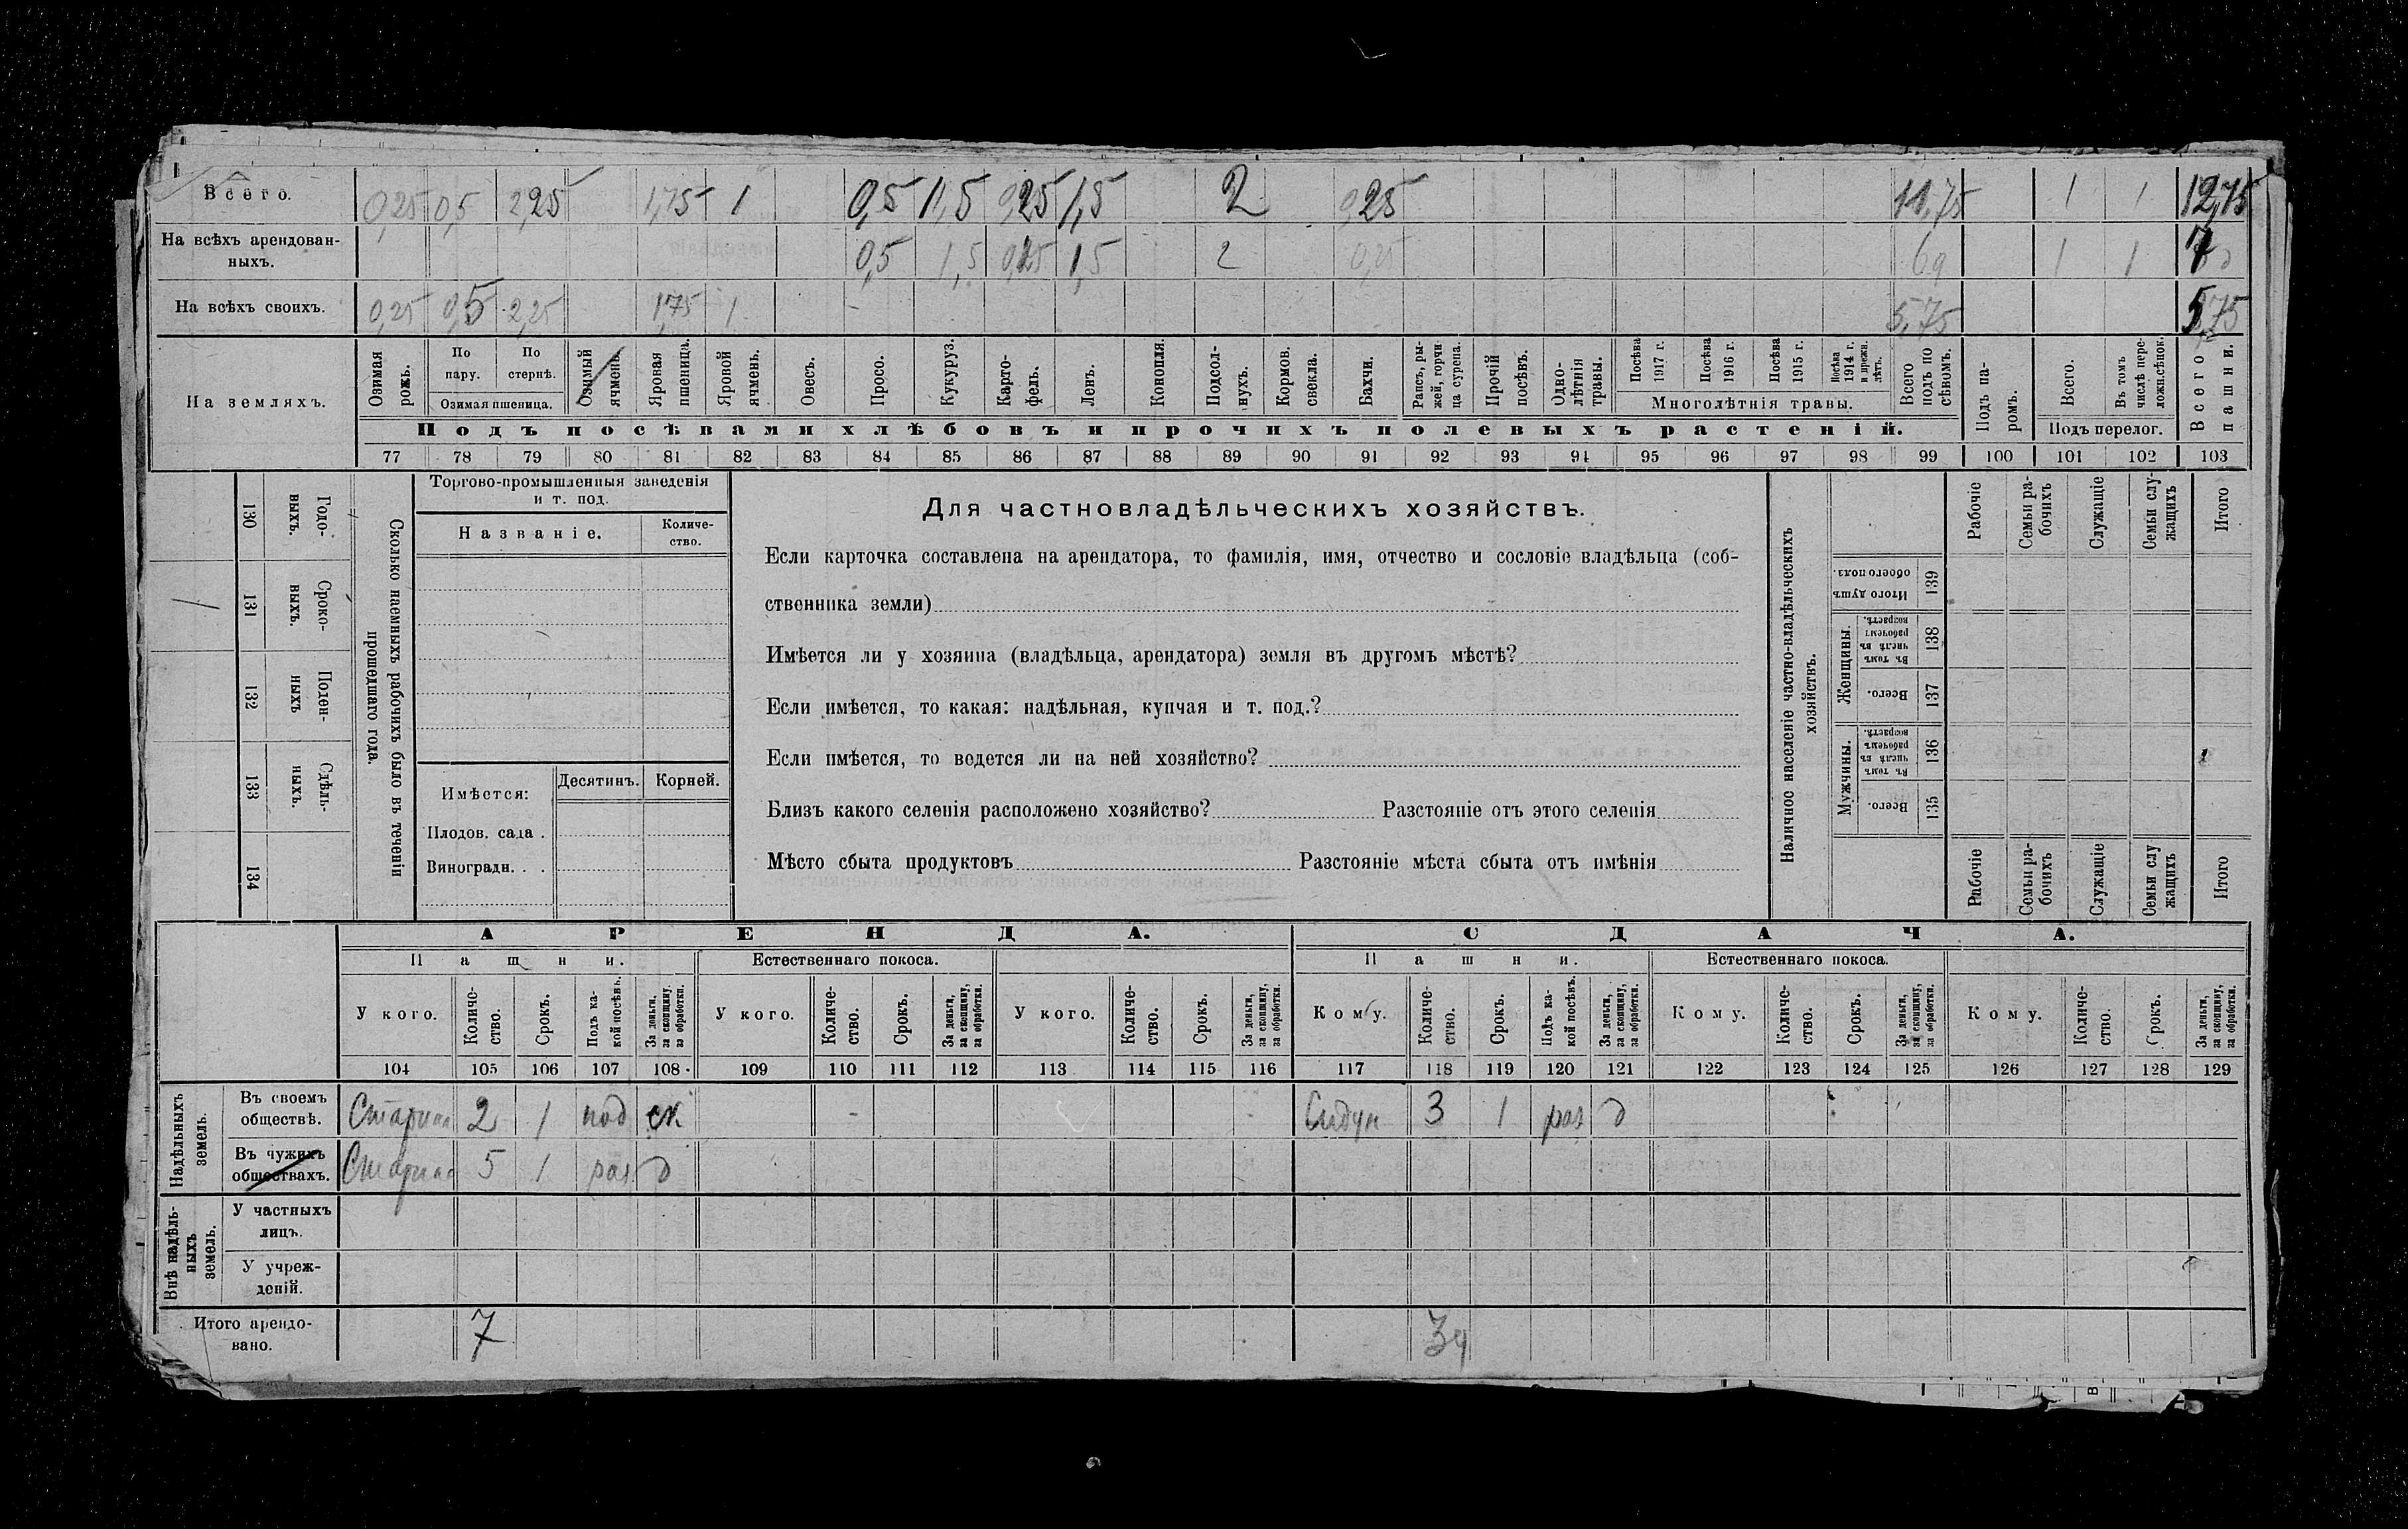 Всего. 0,25 0,5 2,25 1,75 1 0,5 1,5 0,25 1,5 2 0,25 11,75 1 1 12,75
На всѣхъ арендован-
ныхъ. 0,5 1,5 0,25 1,5 2 0,25 1 1 7
На всѣхъ своихъ. 0,25 0,5 2,25 1,75 1 5,75 5,75
На земляхъ.
Озимая рожь.
По пару.
По стернѣ.
Озимая пшеница.
Озимый ячмень.
Яровая пшеница.
Яровой ячмень.
Овесъ.
Просо.
Кукуруз.
Карто-
фель.
Ленъ.
Конопля.
Подсол-
нухъ.
Кормов. свекла.
Бахчи.
Рапсъ, ры-
жей, горчи-
ца сурепа.
Прочій посѣвъ.
Одно-
лѣтнія травы.
Посѣва 1917 г.
Посѣва 1916 г.
Посѣва 1915 г.
Посѣва 1914 г. и прежн. лѣтъ.
Многолѣтнія травы.
Всего подъ по
сѣвомъ.
Подъ па-
ромъ.
Всего.
Въ томъ числѣ пере-
ложн. сѣнок.
Подъ перелог.
Всего пашни.
Подъ посѣвами хлѣбовъ и прочихъ полевыхъ растеній.
77 78 79 80 81 82 83 84 85 86 87 88 89 90 91 92 93 94 95 96 97 98 99 100 101 102 103
130 Годо-
выхъ.
131 Сроко-
выхъ.
132 Поден-
ныхъ
133 Сдѣль-
ныхъ.
134
Сколько наемныхъ рабочихъ было въ теченіи
прошедшаго года.
Торгово-промышленныя заведенія
и т. под.
Названіе.
Количе-
ство.
Имѣется: Десятинъ. Корней.
Плодов. сада .
Виноградн. . .
Для частновладѣльческихъ хозяйствъ.
Если карточка составлена на арендатора, то фамилія, имя, отчество и сословіе владѣльца (соб-
ственника земли)
Имѣется ли у хозяина (владѣльца, арендатора) земля въ другомъ мѣстѣ?
Если имѣется, то какая: надѣльная, купчая и т. под.?
Если имѣется, то ведется ли на ней хозяйство?
Близъ какого селенія расположено хозяйство? Разстояніе отъ этого селенія
Мѣсто сбыта продуктовъ Разстояніе мѣста сбыта отъ имѣнія
Наличное населеніе частно-владѣльческихъ
хозяйствъ.
Рабочіе
Семьи ра-
бочихъ
Служащіе
Семьи слу-
жащихъ
Итого
Итого душъ обоего пола. 139
Женщины.
Въ томъ числѣ въ рабочемъ возрастѣ. 138
Всего. 137
Мужчины.
Въ томъ числѣ въ рабочемъ возрастѣ. 136
Всего. 135
Рабочіе
Семьи ра-
бочихъ
Служащіе
Семьи слу
жащихъ
Итого
АРЕНДА. СДАЧА.
Пашни. Естественнаго покоса. Пашни. Естественнаго покоса.
У кого.
Количе-
ство.
Срокъ.
Подъ ка-
кой посѣвъ.
За деньги, за скопщину, за обработки.
У кого.
Количе-
ство.
Срокъ.
За деньги, за скопщину, за обработки.
У кого.
Количе-
ство.
Срокъ.
За деньги, за скопщину, за обработки.
Кому.
Количе-
ство.
Срокъ.
Подъ ка-
кой посѣвъ.
За деньги, за скопщину, за обработки.
Кому.
Количе-
ство.
Срокъ.
За деньги, за скопщину, за обработки.
Кому.
Количе-
ство.
Срокъ.
За деньги, за скопщину, за обработки.
104 105 106 107 108 109 110 111 112 113 114 115 116 117 118 119 120 121 122 123 124 125 126 127 128 129
Надѣльныхъ
земель.
Въ своемъ
обществѣ. 2 1 под ск 3 1 раз д
Въ чужихъ
обществахъ. 5 1 раз д
Внѣ надѣль-
ныхъ
земель.
У частныхъ
лицъ.
У учреж-
деній.
Итого арендо-
вано. 7 3